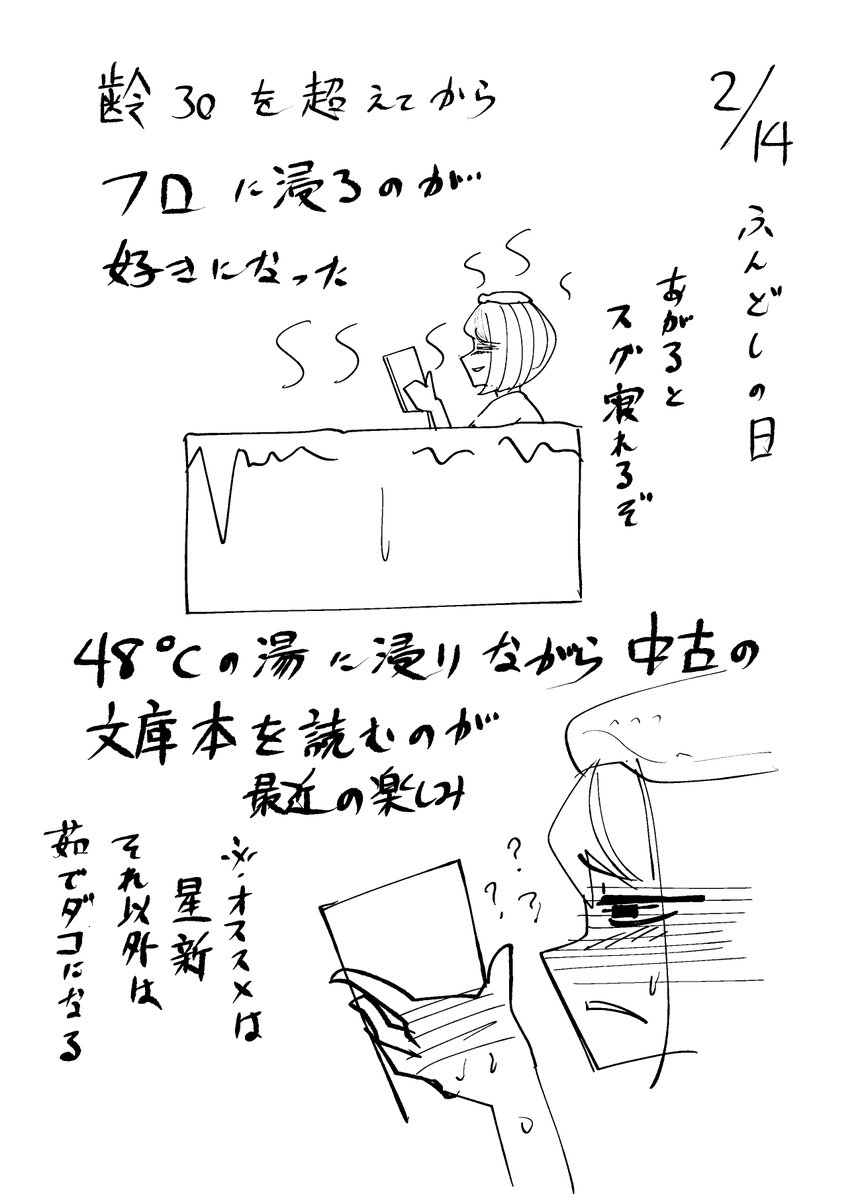 2/14
ふんどしの日
齢30を超えてから
フロに浸るのが
好きになった
あがると
スグ寝れるぞ
48℃の湯に浸りながら中古の
文庫本を読むのが
最近の楽しみ
???
※オススメは
星新
それ以外は
茹でダコになる